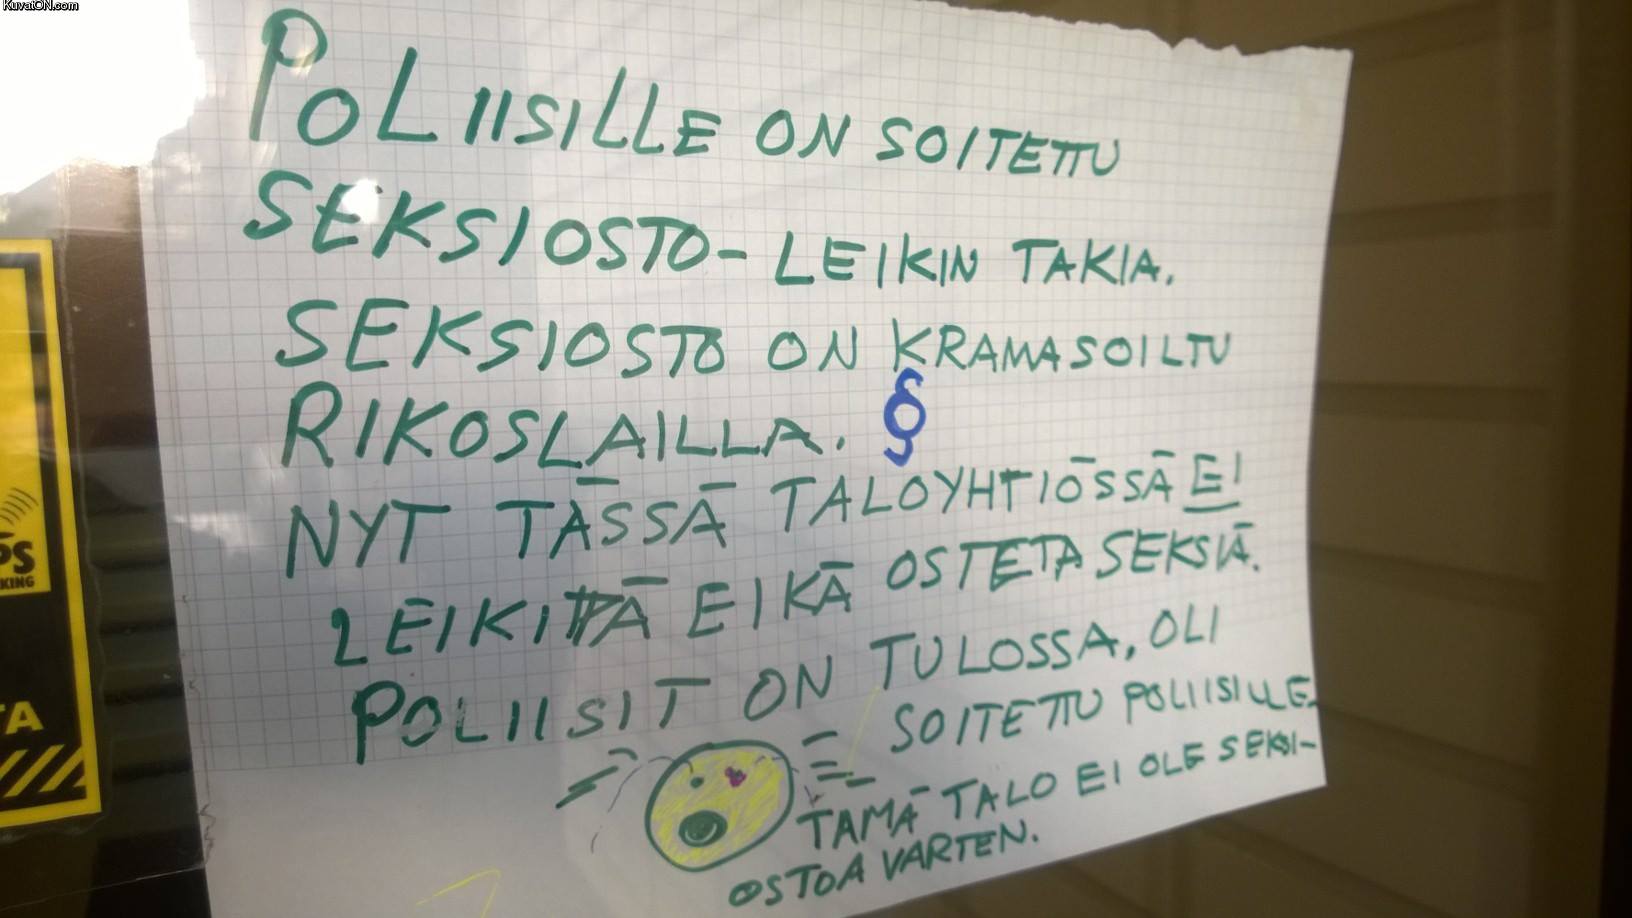 KuvatON.com
POLIISILLE ON SOITETTU
SEKSIOSTO-LEIKIN TAKIA.
SEKSIOSTO ON KRAMASOILTU
RIKOSLAILLA. §
NYT TÄSSÄ TALOYHTIÖSSÄ EI
LEIKITÄ EIKÄ OSTETA SEKSIÄ.
POLIISIT ON TULOSSA, OLI
SOITETTU POLIISILLE.
TÄMÄ TALO EI OLE SEKSI-
OSTOA VARTEN.
PS
KING
TA